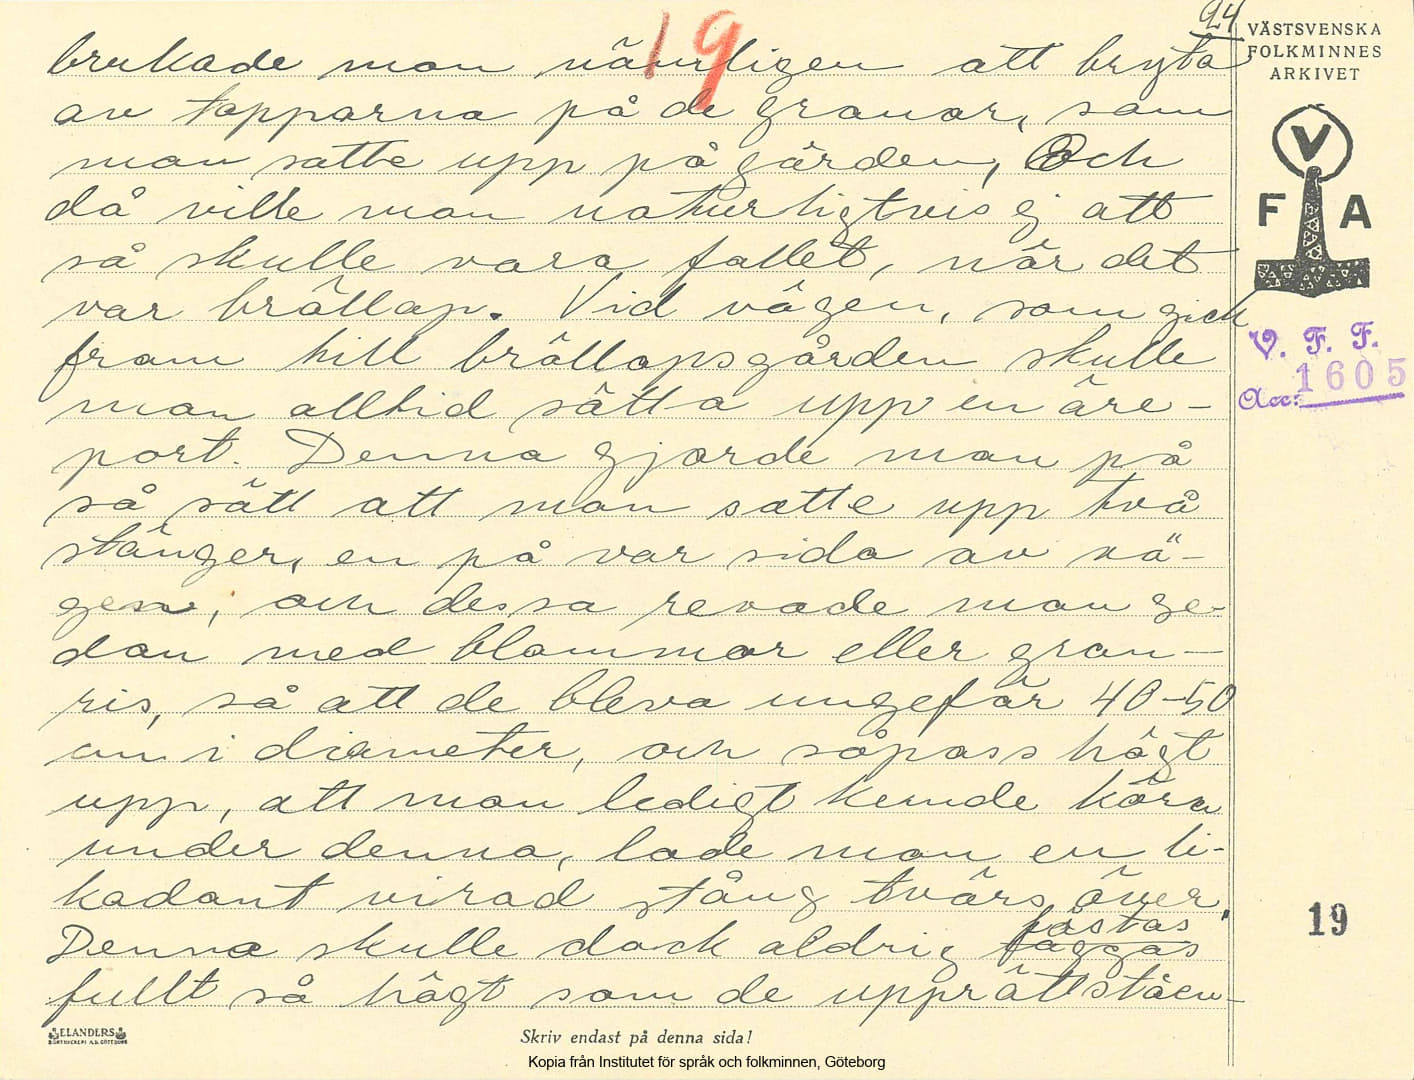 94
19
brukade man nämligen att bryta
av topparna på de granar, som
man satte upp på gården, Och
då ville man naturligtvis ej att
så skulle vara fallet, när det
var bröllop. Vid vägen, som gick
fram till bröllopsgården skulle
man alltid sätta upp en äre-
port. Denna gjorde man på
så sätt att man satte upp två
stänger, en på var sida av vä-
gen, och dessa revade man se-
dan med blommor eller gran-
ris, så att de bleva ungefär 40-50
cm i diameter, och såpass högt
upp, att man ledigt kunde köra
under denna, lade man en li-
kadant virad stång tvärs över.
fästas
Denna skulle dock aldrig läggas
fullt så högt som de upprättståen-
VÄSTSVENSKA
FOLKMINNES
ARKIVET
V
F A
V. F. F.
Acc: 1605
19
ELANDERS
BOKTRYCKERI A.B. GÖTEBORG
Skriv endast på denna sida!
Kopia från Institutet för språk och folkminnen, Göteborg